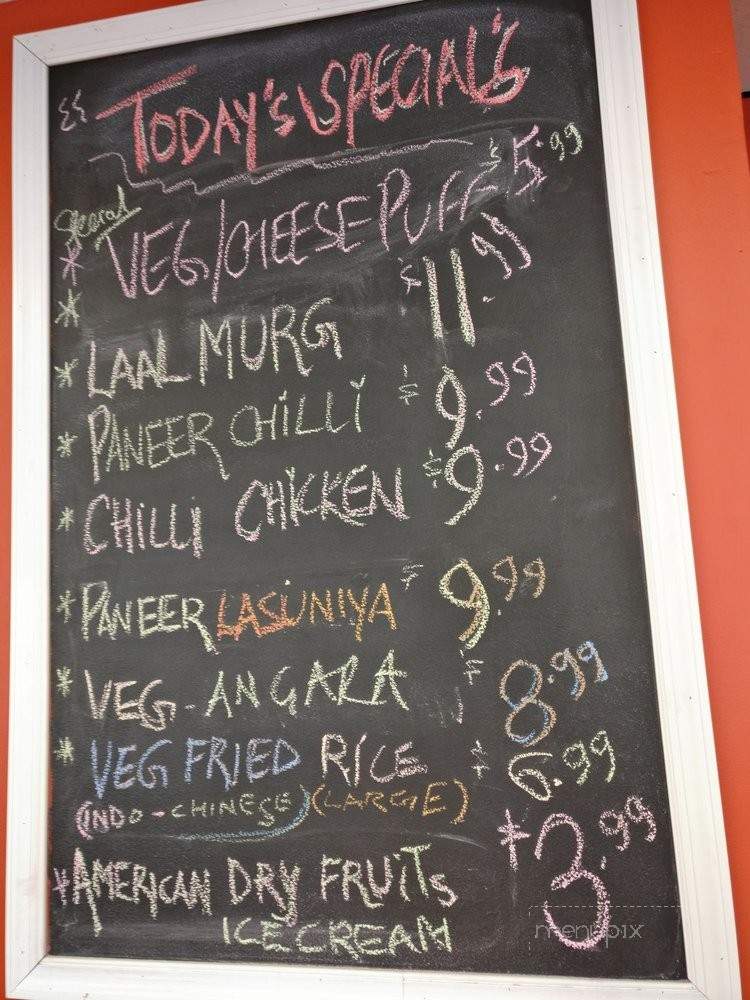 TODAY'S SPECIAL'S
VEG/CHEESE PUFF $5.99
LAAL MURG $11.99
* PANEER CHILLI $9.99
* CHILLI CHICKEN $9.99
* PANEER LASUNIYA $9.99
* VEG-ANGARA $8.99
* VEG FRIED RICE $6.99
(INDO-CHINESE) (LARGE)
AMERICAN DRY FRUITS $3.99
ICE CREAM
menupix